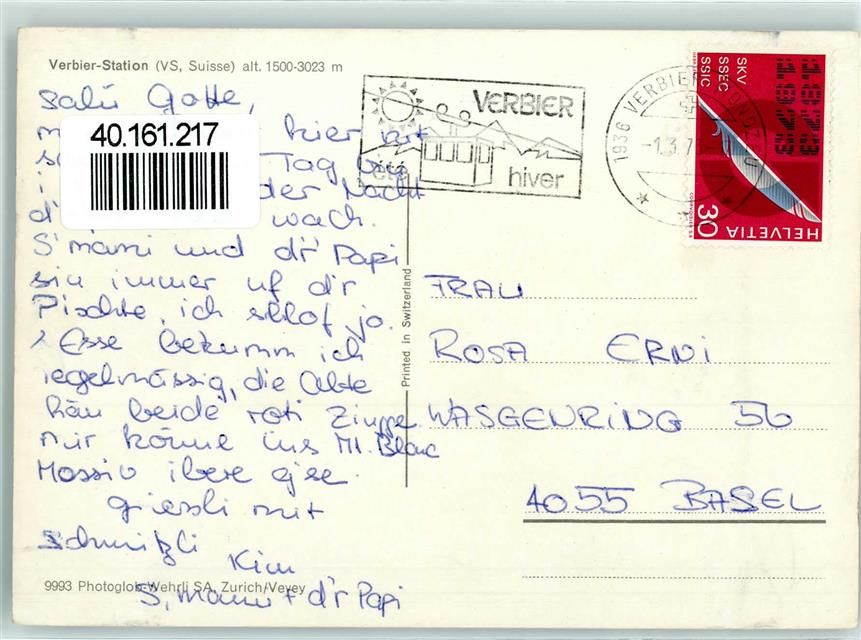 Verbier-Station (VS, Suisse) alt. 1500-3023 m
Salü Gotte,
hier mit
Tag
der Nacht
wach.
S'mami und d'r Papi
sin immer uf d'r
Pischte, ich schlof jo.
s'Esse bekumm ich
regelmässig, die Alte
hän beide roti
mir könne ins Mt. Blanc
Massiv ibere
griessli mit
Schmitzli
Kim
S'mami + d'r Papi
9993 Photoglob-Wehrli SA, Zurich/Vevey
Printed in Switzerland
40.161.217
VERBIER
été
hiver
1936 VERBIER
-1.3.7
SKV
SSEC
SSIC
1873
1973
30
HELVETIA
FRAU
ROSA ERNI
WASGENRING 56
4055 BASEL